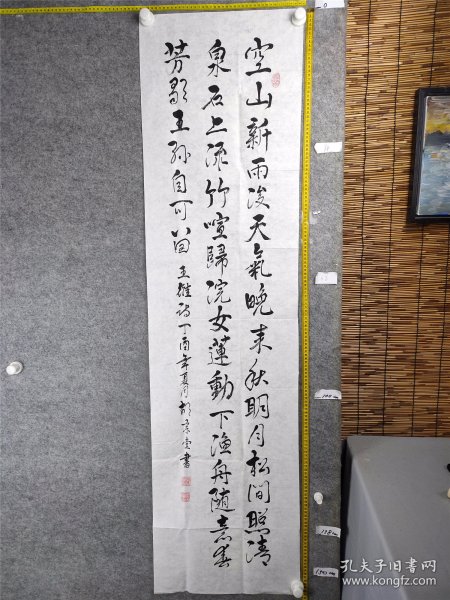 空山新雨後天氣晚来秋明月松間照清
泉石上流竹喧歸浣女蓮動下漁舟随意春
芳歇王孫自可留 王維詩 丁酉年夏月 胡 書
孔夫子旧书网
www.kongfz.com